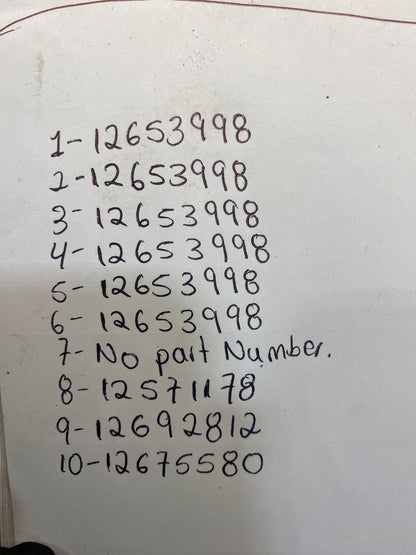 1-12653998
2-12653998
3-12653998
4-12653998
5-12653998
6-12653998
7-No part Number.
8-12571178
9-12692812
10-12675580